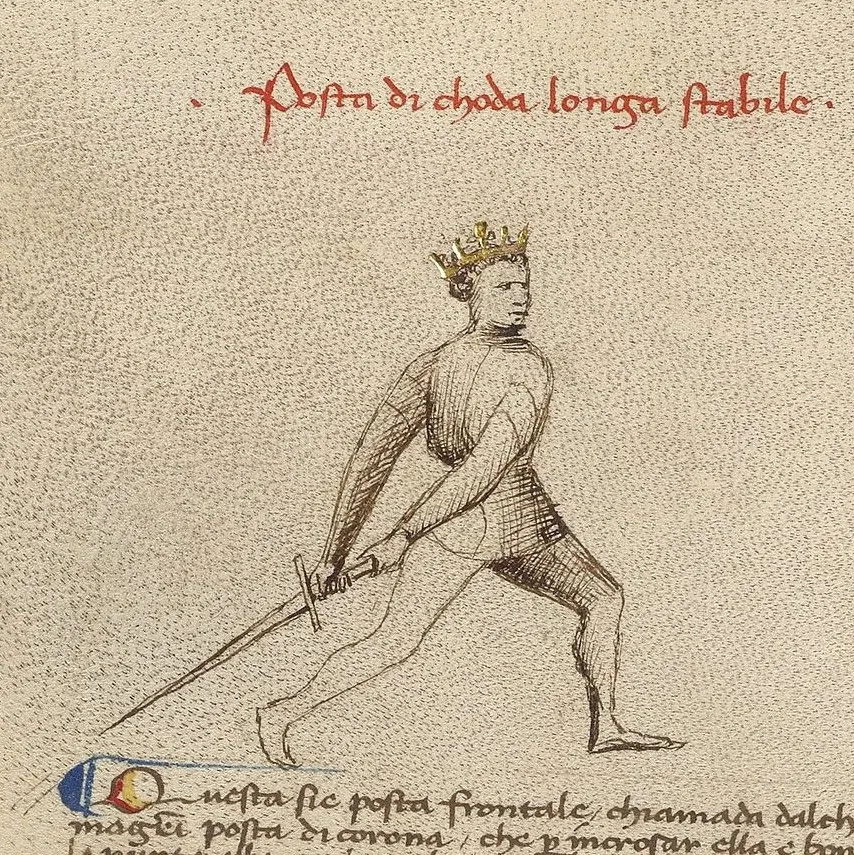 Posta di choda longa stabile.
Questa sie posta frontale / chiamada dalch
magri posta di corona / che p incrosar ella e bon